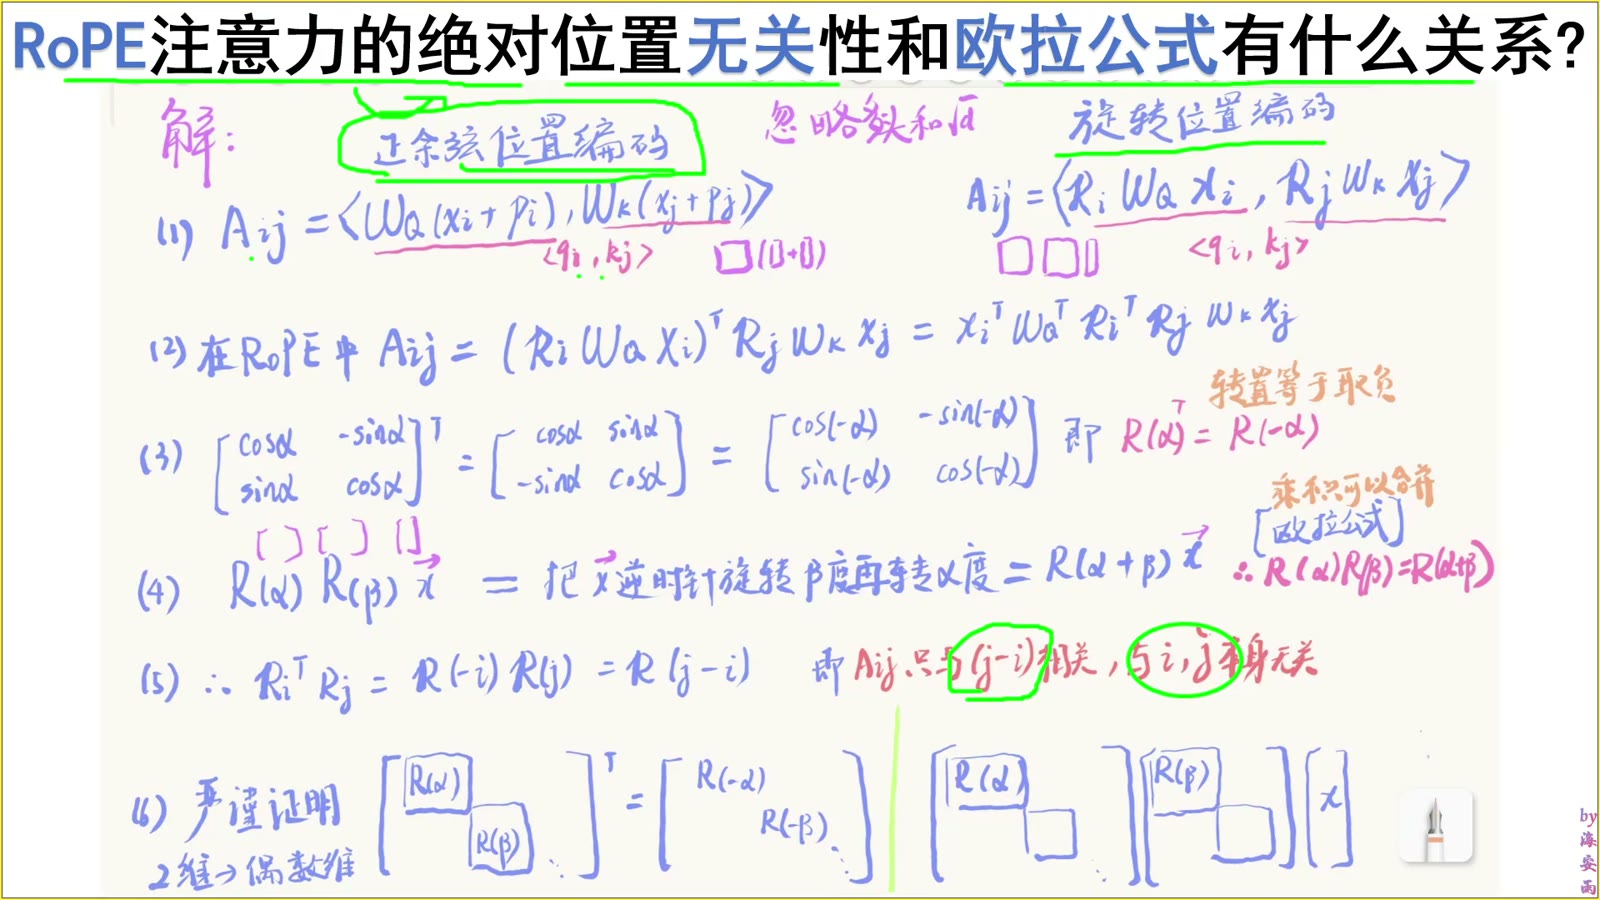 RoPE注意力的绝对位置无关性和欧拉公式有什么关系?
解: 正余弦位置编码 忽略多头和√d 旋转位置编码
(1) Aij = <WQ(xi+pi), WK(xj+pj)> Aij = <Ri WQ xi, Rj WK xj>
<qi, kj> □(▯+▯) □□▯ <qi, kj>
(2) 在RoPE中 Aij = (Ri WQ xi)ᵀ Rj WK xj = xiᵀ WQᵀ Riᵀ Rj WK xj
转置等于取负
(3) [cosα -sinα; sinα cosα]ᵀ = [cosα sinα; -sinα cosα] = [cos(-α) -sin(-α); sin(-α) cos(-α)] 即 R(α)ᵀ = R(-α)
乘积可以合并
[ ] [ ] [] [欧拉公式]
(4) R(α) R(β) x⃗ = 把x⃗逆时针旋转β度再转α度 = R(α+β) x⃗ ∴ R(α)R(β)=R(α+β)
(5) ∴ Riᵀ Rj = R(-i) R(j) = R(j-i) 即 Aij 只与(j-i)相关, 与i,j本身无关
(6) 严谨证明 [R(α) R(β) ⋱]ᵀ = [R(-α) R(-β) ⋱] [R(α) □] [R(β) □] [x]
2维→偶数维
by
海
安
雨